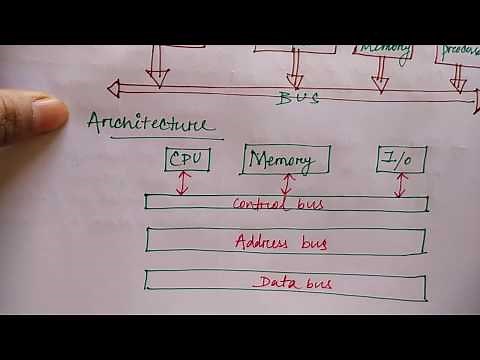 Memory
BUS
Architecture
CPU Memory I/o
Control bus
Address bus
Data bus